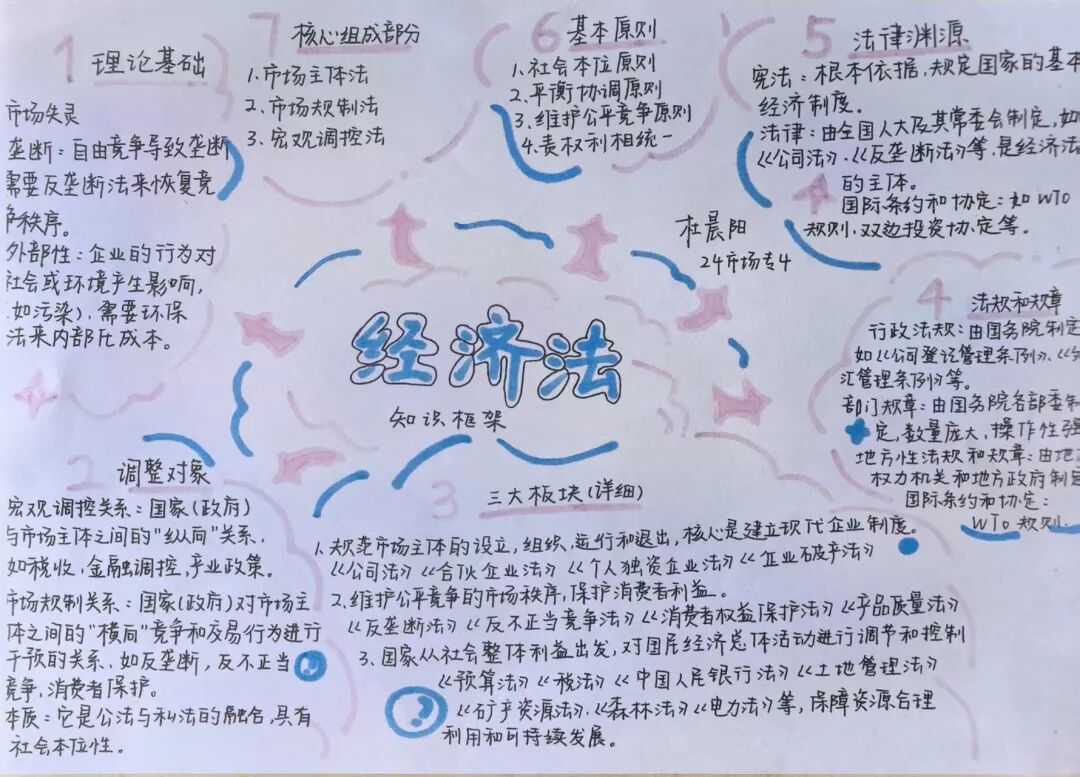 经济法
知识框架
杜晨阳
24市场专4
1 理论基础
市场失灵
垄断：自由竞争导致垄断
需要反垄断法来恢复竞
争秩序。
外部性：企业的行为对
社会或环境产生影响，
如污染），需要环保
法来内部化成本。
2 调整对象
宏观调控关系：国家（政府）
与市场主体之间的"纵向"关系，
如税收，金融调控，产业政策。
市场规制关系：国家（政府）对市场主
体之间的"横向"竞争和交易行为进行
干预的关系，如反垄断，反不正当
竞争，消费者保护。
本质：它是公法与私法的融合，具有
社会本位性。
3 三大板块（详细）
1. 规范市场主体的设立，组织，运行和退出，核心是建立现代企业制度。
《公司法》《合伙企业法》《个人独资企业法》《企业破产法》
2. 维护公平竞争的市场秩序，保护消费者利益。
《反垄断法》《反不正当竞争法》《消费者权益保护法》《产品质量法》
3. 国家从社会整体利益出发，对国民经济总体活动进行调节和控制
《预算法》《税法》《中国人民银行法》《土地管理法》
《矿产资源法》、《森林法》《电力法》等，保障资源合理
利用和可持续发展。
4 法规和规章
行政法规：由国务院制定
如《公司登记管理条例》、《外
汇管理条例》等。
部门规章：由国务院各部委制
定，数量庞大，操作性强
地方性法规和规章：由地方
权力机关和地方政府制定
国际条约和协定：
WTO规则
5 法律渊源
宪法：根本依据，规定国家的基本
经济制度。
法律：由全国人大及其常委会制定，如
《公司法》、《反垄断法》等，是经济法
的主体。
国际条约和协定：如WTO
规则，双边投资协定等。
6 基本原则
1. 社会本位原则
2. 平衡协调原则
3. 维护公平竞争原则
4. 责权利相统一
7 核心组成部分
1. 市场主体法
2. 市场规制法
3. 宏观调控法